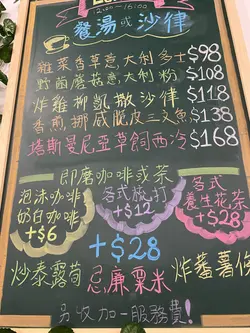 12:00-16:00
餐湯或沙律
雜菜香草意大利多士 $98
野菌蘑菇意大利粉 $108
炸雞柳凱撒沙律 $118
香煎挪威脆皮三文魚 $138
塔斯曼尼亞草飼西冷 $168
即磨咖啡或茶
泡沫咖啡
奶白咖啡
+$6
各式梳打
+$12
各式
養生花茶
+$28
+$28
炒泰露筍
忌廉粟米
炸蕃薯條
另收加一服務費!